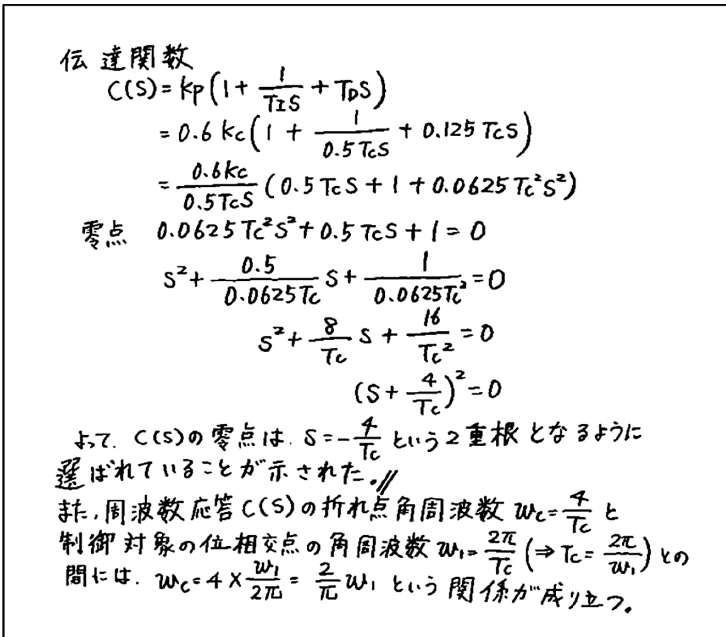 伝達関数
C(S) = Kp(1 + 1/(TIS) + TDS)
= 0.6 Kc(1 + 1/(0.5TcS) + 0.125TcS)
= 0.6Kc/(0.5TcS) (0.5TcS + 1 + 0.0625Tc²S²)
零点 0.0625Tc²S² + 0.5TcS + 1 = 0
S² + 0.5/(0.0625Tc) S + 1/(0.0625Tc²) = 0
S² + 8/Tc S + 16/Tc² = 0
(S + 4/Tc)² = 0
よって. C(S)の零点は. S = -4/Tc という2重根となるように
選ばれていることが示された。//
また, 周波数応答C(S)の折れ点角周波数 ωc = 4/Tc と
制御対象の位相交点の角周波数 ω1 = 2π/Tc (⇒ Tc = 2π/ω1) との
間には. ωc = 4 × ω1/2π = 2/π ω1 という関係が成り立つ。